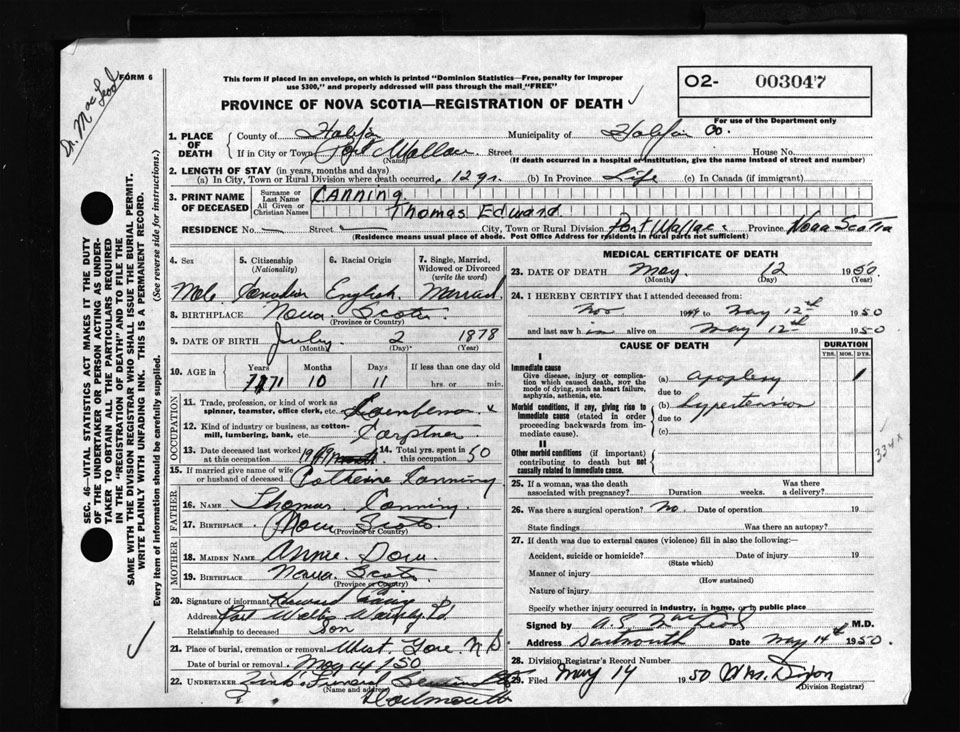 Dr. MacLeod
FORM 6
This form if placed in an envelope, on which is printed "Dominion Statistics—Free, penalty for improper
use $300," and properly addressed will pass through the mail "FREE"
O2- 003047
For use of the Department only
PROVINCE OF NOVA SCOTIA—REGISTRATION OF DEATH
1. PLACE OF DEATH County of Halifax Municipality of Halifax Co.
If in City or Town Port Wallace Street House No.
(Name) (If death occurred in a hospital or institution, give the name instead of street and number)
2. LENGTH OF STAY (in years, months and days)
(a) In City, Town or Rural Division where death occurred, 12 yr. (b) In Province Life (c) In Canada (if immigrant)
3. PRINT NAME OF DECEASED Surname or Last Name CANNING
All Given or Christian Names Thomas Edward
RESIDENCE No. — Street — City, Town or Rural Division Port Wallace Province Nova Scotia
(Residence means usual place of abode. Post Office Address for residents in rural parts not sufficient)
4. Sex 5. Citizenship (Nationality) 6. Racial Origin 7. Single, Married, Widowed or Divorced (write the word)
Male Canadian English Married
8. BIRTHPLACE Nova Scotia
(Province or Country)
9. DATE OF BIRTH July 2 1878
(Month) (Day) (Year)
10. AGE in Years Months Days If less than one day old
71 10 11 hrs. or min.
OCCUPATION
11. Trade, profession, or kind of work as
spinner, teamster, office clerk, etc.
12. Kind of industry or business, as cotton-
mill, lumbering, bank, etc.
13. Date deceased last worked at this occupation 1949 14. Total yrs. spent in this occupation 50
15. If married give name of wife
or husband of deceased Catherine Canning
FATHER
16. NAME Thomas Canning
17. BIRTHPLACE Nova Scotia
(Province or Country)
MOTHER
18. MAIDEN NAME Annie
19. BIRTHPLACE Nova Scotia
(Province or Country)
20. Signature of informant
Address
Relationship to deceased Son
21. Place of burial, cremation or removal West Gore N.S.
Date of burial or removal May 14/50
22. UNDERTAKER Funeral
(Name and address)
Dartmouth
MEDICAL CERTIFICATE OF DEATH
23. DATE OF DEATH May 12 1950
(Month) (Day) (Year)
24. I HEREBY CERTIFY that I attended deceased from:
Nov 1949 to May 12th 1950
and last saw him alive on May 12th 1950
CAUSE OF DEATH DURATION
YRS. MOS. DYS.
I
Immediate cause
Give disease, injury or compli-
cation which caused death, not the
mode of dying, such as heart failure,
asphyxia, asthenia, etc.
(a) apoplexy 1
due to
Morbid conditions, if any, giving rise to
immediate cause (stated in order
proceeding backwards from im-
mediate cause).
(b) hypertension
due to
(c)
334x
II
Other morbid conditions (if important)
contributing to death but not
causally related to immediate cause.
25. If a woman, was the death
associated with pregnancy? Duration weeks. Was there a delivery?
26. Was there a surgical operation? no. Date of operation 19
State findings Was there an autopsy?
27. If death was due to external causes (violence) fill in also the following:—
Accident, suicide or homicide? Date of injury 19
(State which)
Manner of injury
(How sustained)
Nature of injury
Specify whether injury occurred in industry, in home, or in public place
Signed by M.D.
Address Dartmouth Date May 14th 1950
28. Division Registrar's Record Number
29. Filed May 14 1950 Mrs. Dixon
(Division Registrar)
SEC. 46—VITAL STATISTICS ACT MAKES IT THE DUTY
OF THE UNDERTAKER OR PERSON ACTING AS UNDER-
TAKER TO OBTAIN ALL THE PARTICULARS REQUIRED
IN THE "REGISTRATION OF DEATH" AND TO FILE THE
SAME WITH THE DIVISION REGISTRAR WHO SHALL ISSUE THE BURIAL PERMIT.
WRITE PLAINLY WITH UNFADING INK. THIS IS A PERMANENT RECORD.
Every item of information should be carefully supplied. (See reverse side for instructions.)